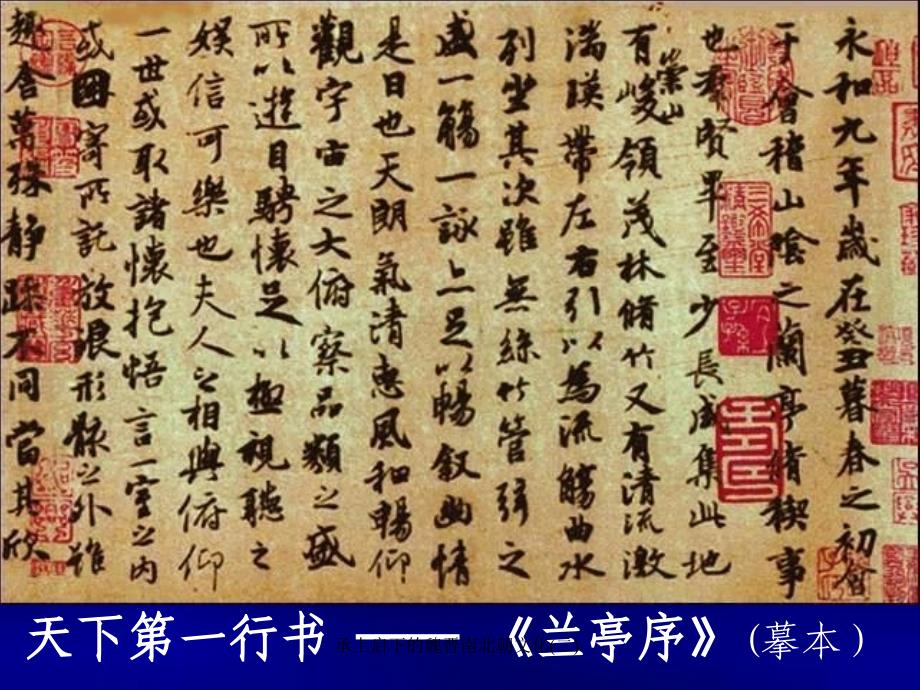 永和九年歲在癸丑暮春之初會
于會稽山陰之蘭亭脩稧事
也羣賢畢至少長咸集此地
有崇山峻領茂林脩竹又有清流激
湍暎帶左右引以為流觴曲水
列坐其次雖無絲竹管弦之
盛一觴一詠亦足以暢叙幽情
是日也天朗氣清惠風和暢仰
觀宇宙之大俯察品類之盛
所以遊目騁懷足以極視聽之
娛信可樂也夫人之相與俯仰
一世或取諸懷抱悟言一室之內
或因寄所託放浪形骸之外雖
趣舍萬殊靜躁不同當其欣
天下第一行书 ——《兰亭序》(摹本)
承上启下的魏晋南北朝文化